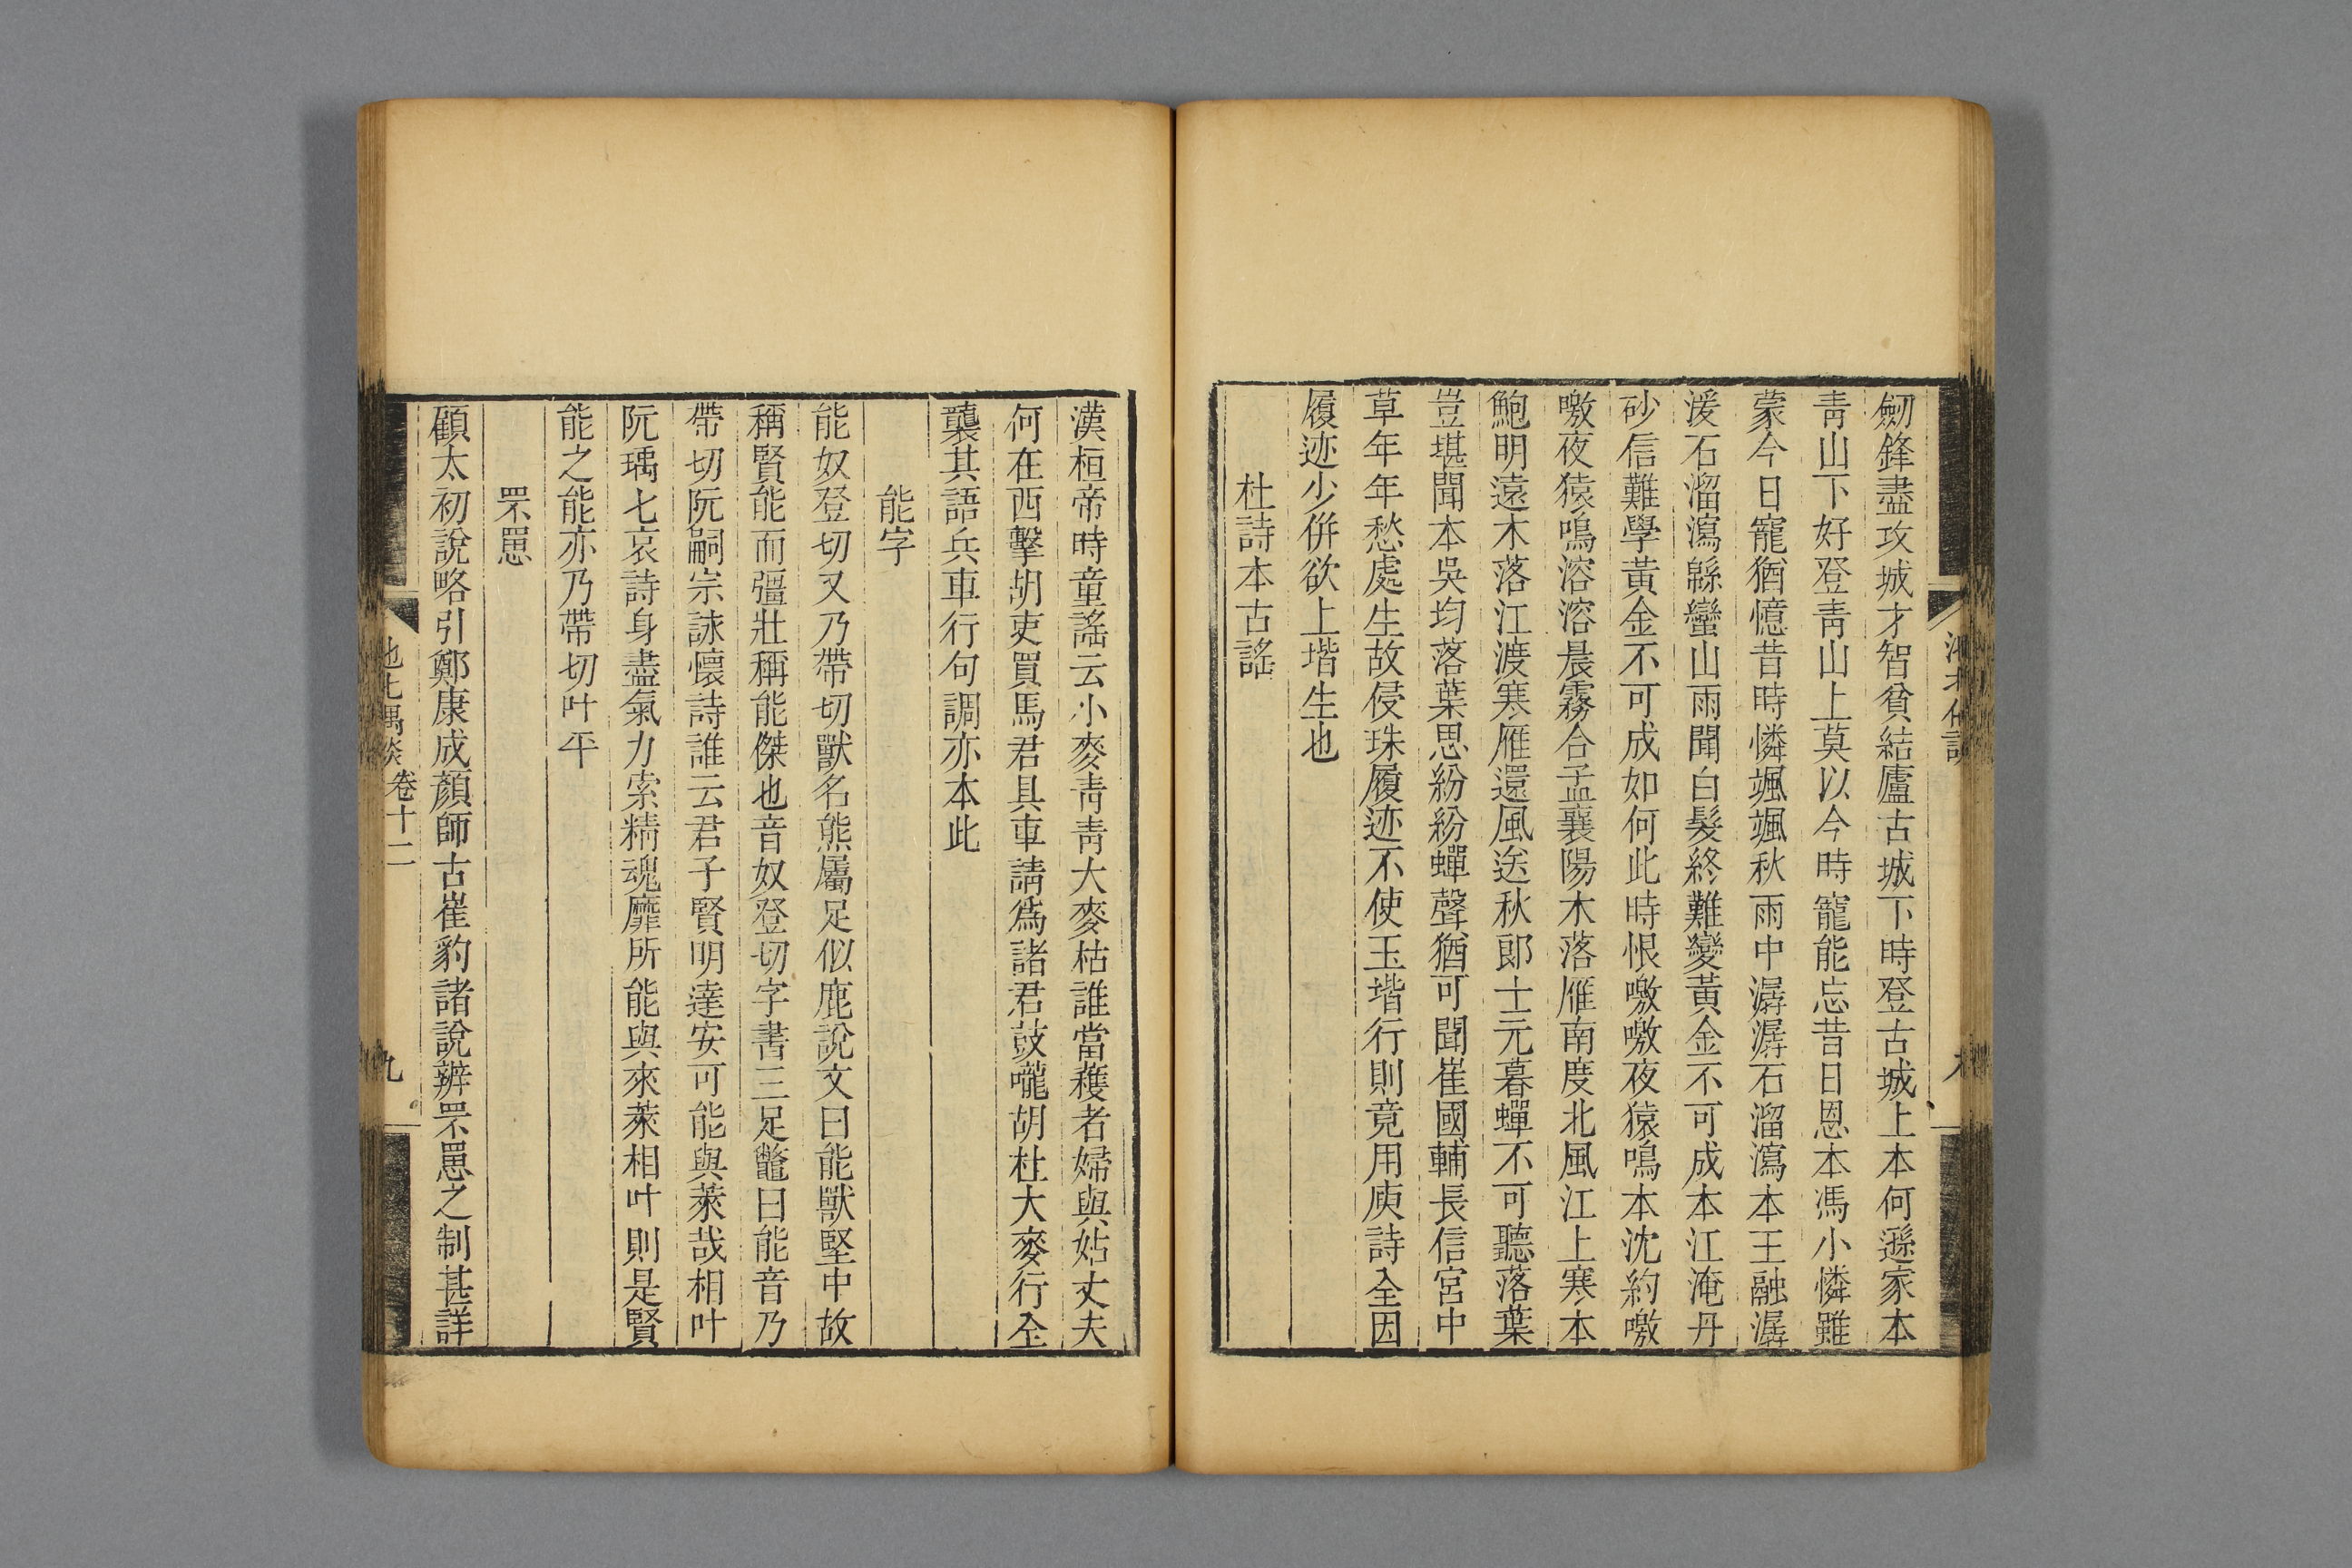 劒鋒盡攻城才智貧結廬古城下時登古城上本何遜家本
靑山下好登靑山上莫以今時寵能忘昔日恩本馮小憐雖
蒙今日寵猶憶昔時憐颯颯秋雨中潺潺石溜瀉本王融潺
湲石溜瀉緜蠻山雨聞白髮終難變黃金不可成本江淹丹
砂信難學黃金不可成如何此時恨噭噭夜猿鳴本沈約噭
噭夜猿鳴溶溶晨霧合孟襄陽木落雁南度北風江上寒本
鮑明遠木落江渡寒雁還風送秋郎士元暮蟬不可聽落葉
豈堪聞本吳均落葉思紛紛蟬聲猶可聞崔國輔長信宮中
草年年愁處生故侵珠履迹不使玉堦行則竟用庾詩全因
履迹少併欲上堦生也
杜詩本古謠
漢桓帝時童謠云小麥靑靑大麥枯誰當穫者婦與姑丈夫
何在西擊胡吏買馬君具車請爲諸君鼓嚨胡杜大麥行全
襲其語兵車行句調亦本此
能字
能奴登切又乃帶切獸名熊屬足似鹿說文曰能獸堅中故
稱賢能而彊壯稱能傑也音奴登切字書三足鼈曰能音乃
帶切阮嗣宗詠懷詩誰云君子賢明達安可能與萊哉相叶
阮瑀七哀詩身盡氣力索精魂靡所能與來萊相叶則是賢
能之能亦乃帶切叶平
罘罳
顧太初說略引鄭康成顏師古崔豹諸說辨罘罳之制甚詳
池北偶談 卷十二 九